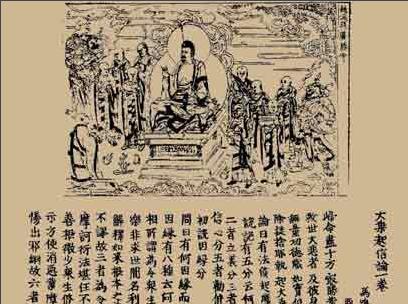 大乘起信論一卷
馬鳴
歸命盡十方 最勝業
救世大悲者 及彼
無量功德藏 如實
除疑捨邪執 起大
論曰有法能起
說說有五分云何
二者立義分三
信心分五者勸修
初說因緣分
問曰有何因緣而
因緣有八種云何
相所謂為令眾生
樂非求世間名利
解釋如來根本之
不謬故三者為令
摩訶衍法堪任不
善根微少眾生修
示方便消惡業障
慢出邪網故六者